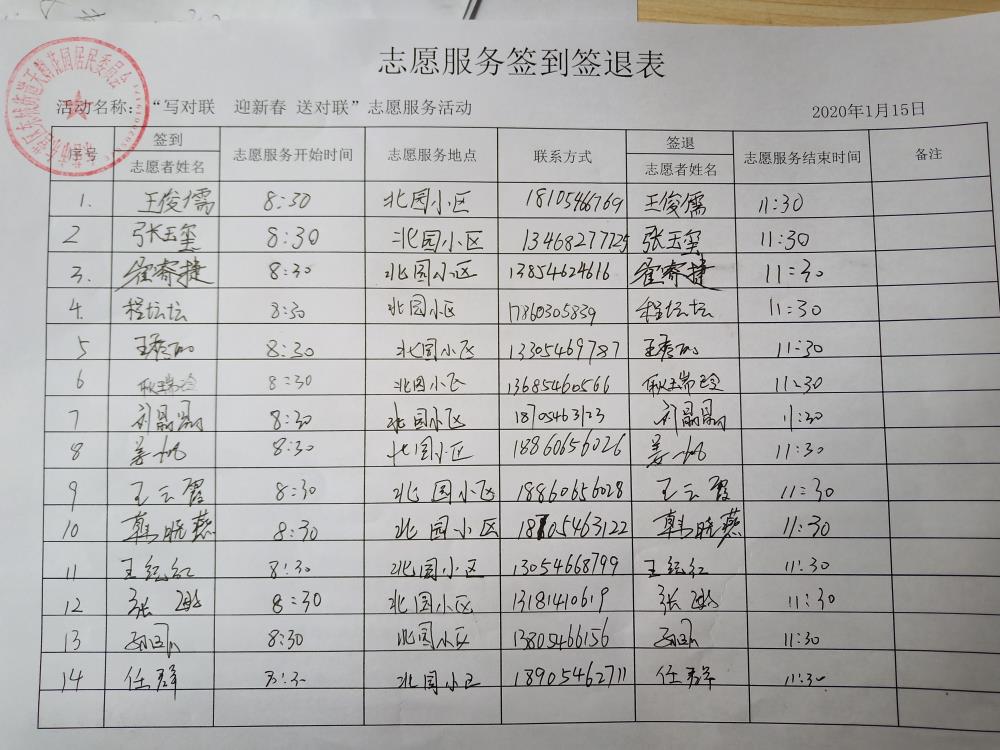 志愿服务签到签退表
活动名称：“写对联 迎新春 送对联”志愿服务活动 2020年1月15日
序号 签到 志愿者姓名 志愿服务开始时间 志愿服务地点 联系方式 签退 志愿者姓名 志愿服务结束时间 备注
1. 王俊儒 8:30 北园小区 18105466769 王俊儒 11:30
2 张玉玺 8:30 北园小区 13468277725 张玉玺 11:30
3. 翟寄捷 8:30 北园小区 13854624616 翟寄捷 11:30
4. 程坛坛 8:30 北园小区 17860305839 程坛坛 11:30
5 8:30 北园小区 13305469787 11:30
6 耿瑞玲 8:30 北园小区 13685460566 耿瑞玲 11:30
7 刘晶晶 8:30 北园小区 18705463123 刘晶晶 11:30
8 姜帆 8:30 北园小区 18860656026 姜帆 11:30
9 王云霞 8:30 北园小区 18860656028 王云霞 11:30
10 韩晓燕 8:30 北园小区 18705463122 韩晓燕 11:30
11 王纪红 8:30 北园小区 13054668799 王纪红 11:30
12 张 8:30 北园小区 13181410619 张 11:30
13 8:30 北园小区 13805466156 11:30
14 任群 8:30 北园小区 18905462711 任群 11:30